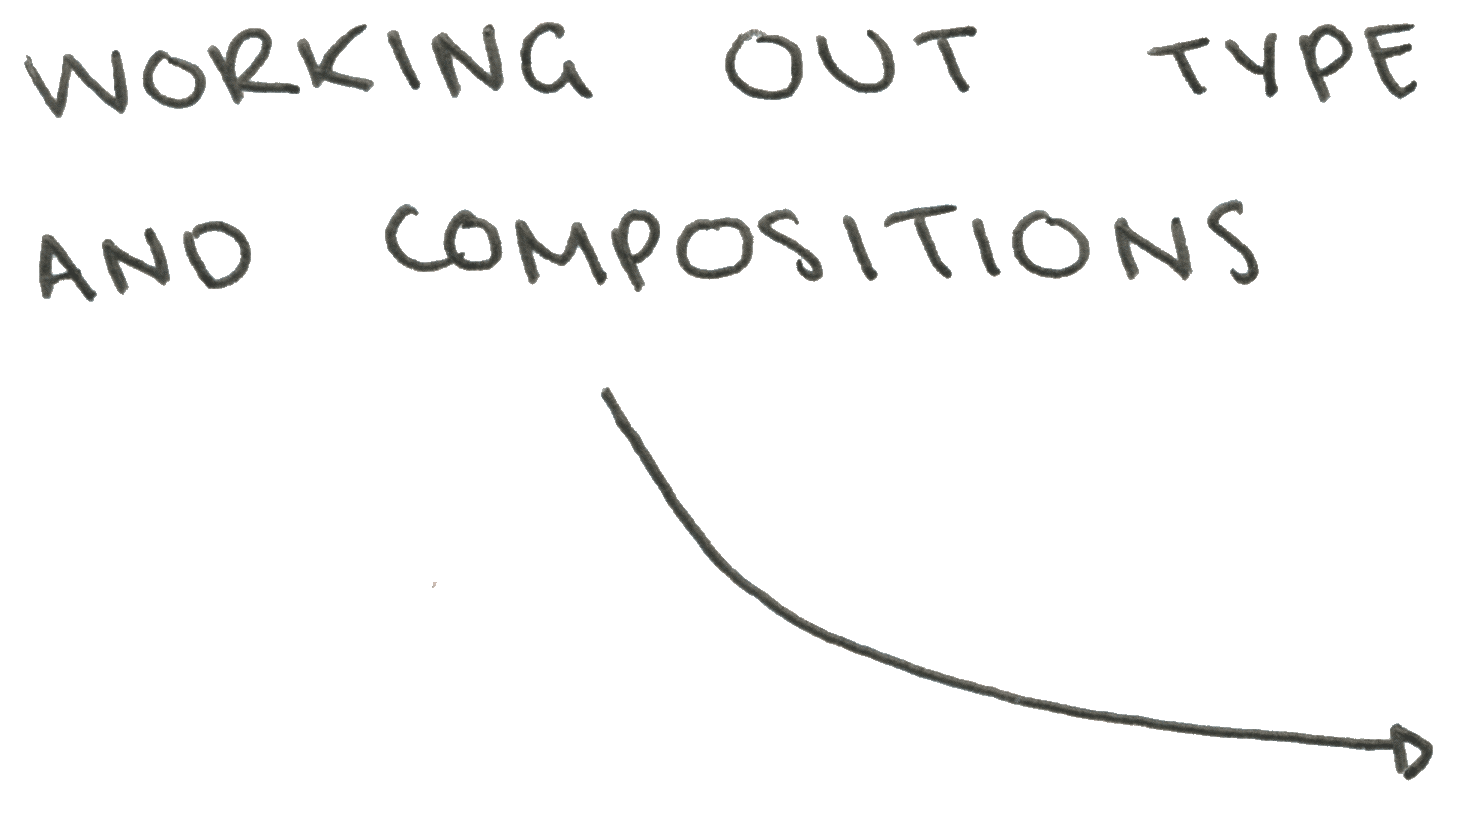 WORKING OUT TYPE
AND COMPOSITIONS